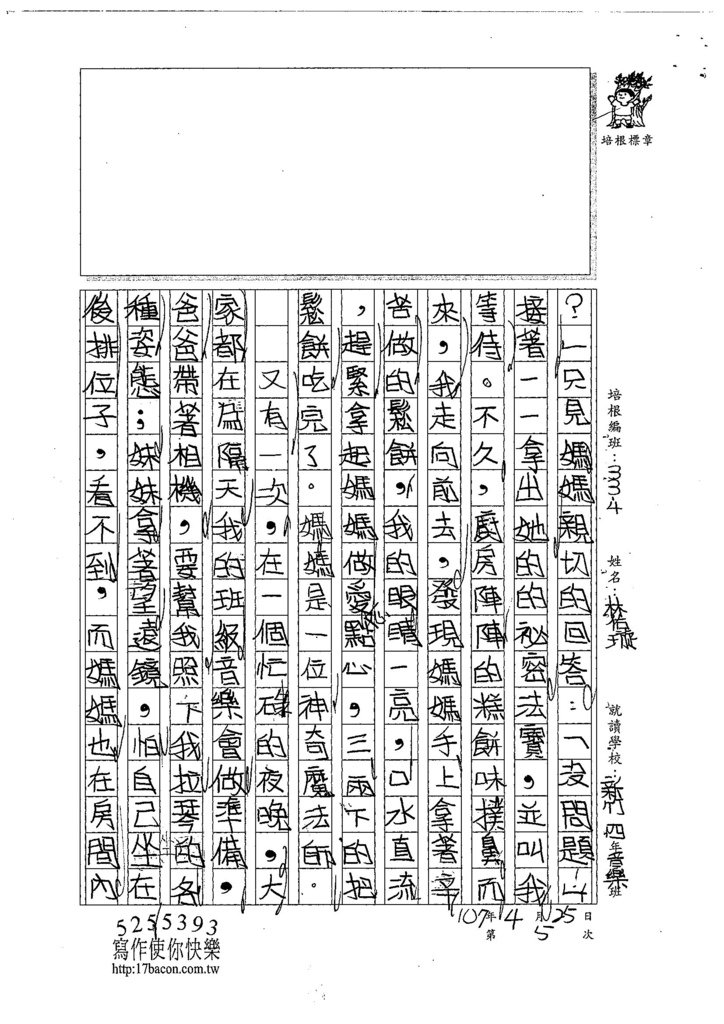 培根標章
培根編班：334
姓名：林佑璇
就讀學校：新竹 四年音樂班
107年4月25日
第5次
？」只見媽媽親切的回答：「沒問題！」
接著一一拿出她的的祕密法寶，並叫我
等待。不久，廚房陣陣的糕餅味撲鼻而
來，我走向前去，發現媽媽手上拿著辛
苦做的鬆餅，我的眼睛一亮，口水直流
，趕緊拿起媽媽做愛點心，三兩下的把
鬆餅吃完了。媽媽是一位神奇魔法師。
又有一次，在一個忙碌的夜晚，大
家都在為隔天我的班級音樂會做準備，
爸爸帶著相機，要幫我照下我拉琴的各
種姿態；妹妹拿著望遠鏡，怕自己坐在
後排位子，看不到，而媽媽也在房間內
5255393
寫作使你快樂
http:17bacon.com.tw